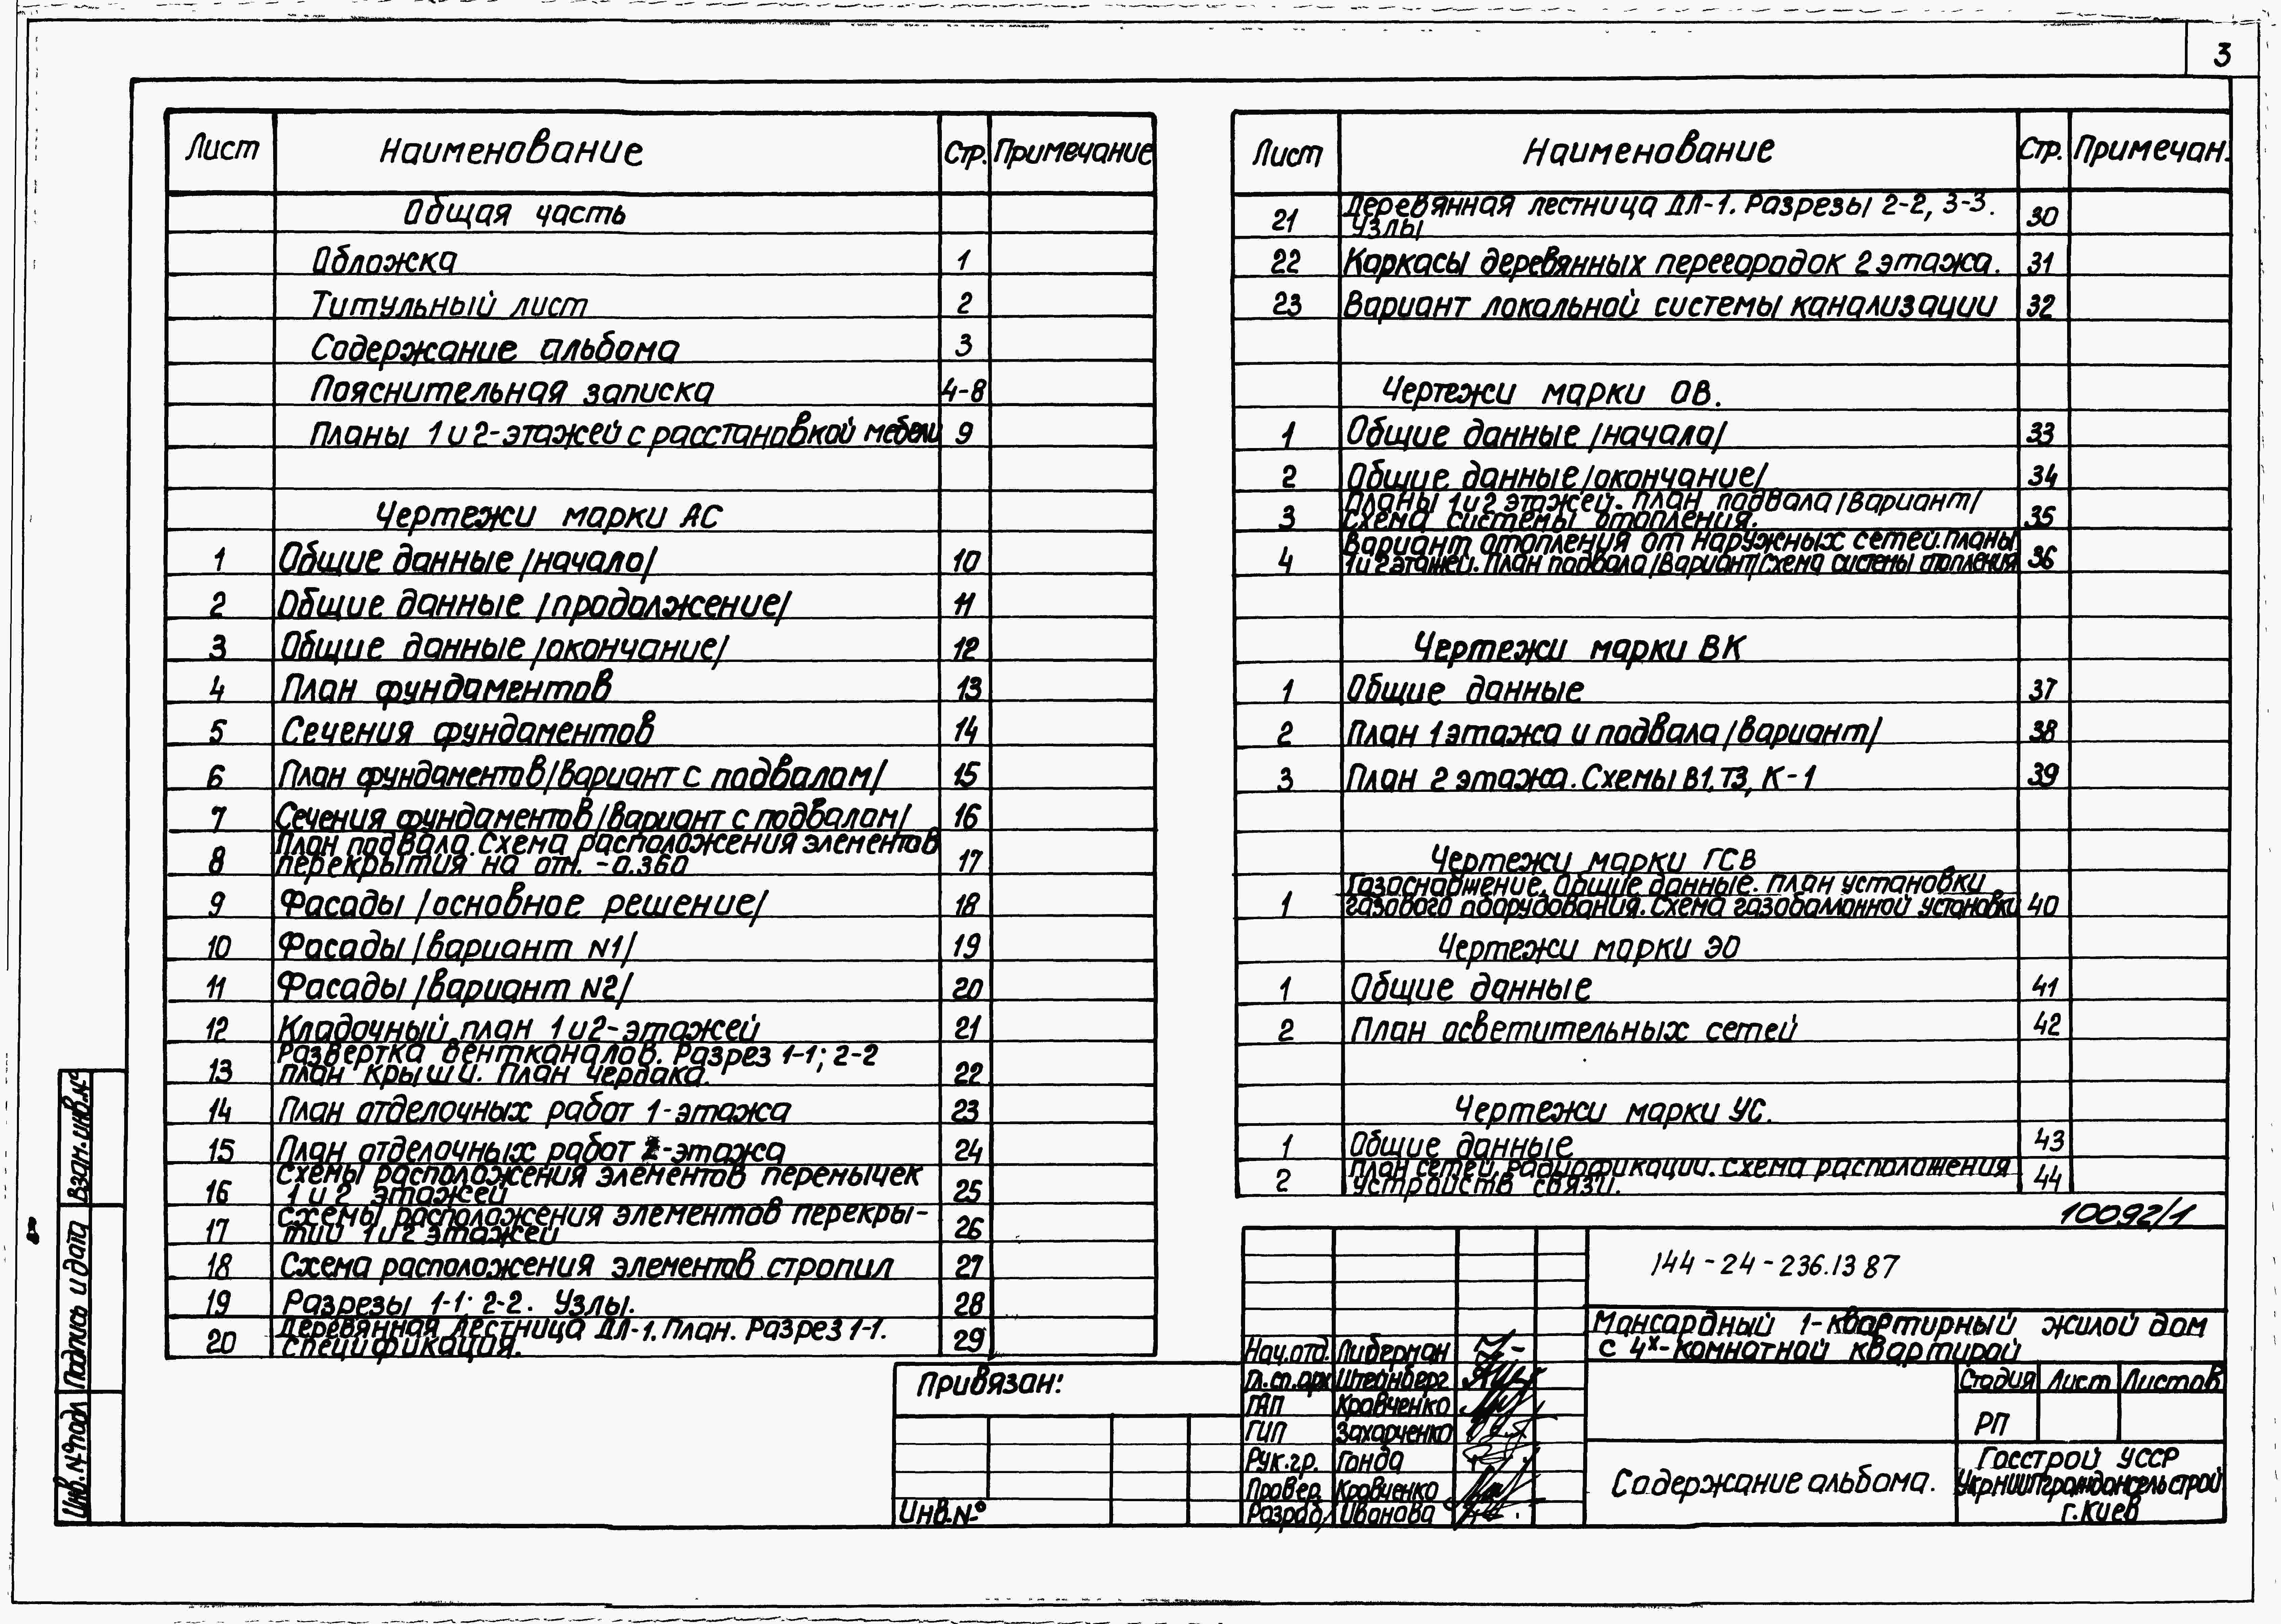 3
Лист Наименование Стр. Примечание
Общая часть
Обложка 1
Титульный лист 2
Содержание альбома 3
Пояснительная записка 4-8
Планы 1 и 2-этажей с расстановкой мебели 9
Чертежи марки АС
1 Общие данные /начало/ 10
2 Общие данные /продолжение/ 11
3 Общие данные /окончание/ 12
4 План фундаментов 13
5 Сечения фундаментов 14
6 План фундаментов /вариант с подвалом/ 15
7 Сечения фундаментов /вариант с подвалом/ 16
План подвала. Схема расположения элементов
8 перекрытия на отм. -0.360 17
9 Фасады /основное решение/ 18
10 Фасады /вариант N1/ 19
11 Фасады /вариант N2/ 20
12 Кладочный план 1 и 2-этажей 21
Развертка вентканалов. Разрез 1-1; 2-2
13 план крыши. План чердака. 22
14 План отделочных работ 1-этажа 23
15 План отделочных работ 2-этажа 24
Схемы расположения элементов перемычек
16 1 и 2 этажей 25
Схемы расположения элементов перекры-
17 тий 1 и 2 этажей 26
18 Схема расположения элементов стропил 27
19 Разрезы 1-1; 2-2. Узлы. 28
Деревянная лестница ДЛ-1. План. Разрез 1-1.
20 Спецификация. 29
Лист Наименование Стр. Примечан.
Деревянная лестница ДЛ-1. Разрезы 2-2, 3-3.
21 Узлы 30
22 Каркасы деревянных перегородок 2 этажа. 31
23 Вариант локальной системы канализации 32
Чертежи марки ОВ.
1 Общие данные /начала/ 33
2 Общие данные /окончание/ 34
Планы 1 и 2 этажей. План подвала /вариант/
3 Схема системы отопления. 35
Вариант отопления от наружных сетей. Планы
4 1 и 2 этажей. План подвала /вариант/ Схема системы отопления 36
Чертежи марки ВК
1 Общие данные 37
2 План 1 этажа и подвала /вариант/ 38
3 План 2 этажа. Схемы В1, Т3, К-1 39
Чертежи марки ГСВ
Газоснабжение. Общие данные. План установки
1 газового оборудования. Схема газобаллонной установки 40
Чертежи марки ЭО
1 Общие данные 41
2 План осветительных сетей 42
Чертежи марки УС.
1 Общие данные 43
План сетей радиофикации. Схема расположения
2 устройств связи. 44
10092/1
144-24-236.13 87
Мансардный 1-квартирный жилой дом
с 4х-комнатной квартирой
Стадия Лист Листов
РП
Содержание альбома.
Госстрой УССР
УкрНИИПграждансельстрой
г. Киев
Нач. отд. Либерман
Гл. сп. арх Штейнберг
ГАП Кравченко
ГИП Захарченко
Рук. гр. Гонда
Провер. Кравченко
Разраб. Иванова
Привязан:
Инв. №
Взам. инв. №
Подпись и дата
Инв. № подл